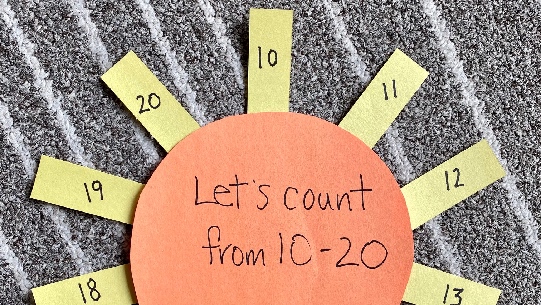 10
11
12
13
18
19
20
Let's count
from 10-20